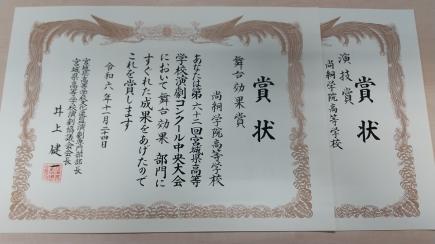 賞状
演技賞
尚絅学院高等学校
賞状
舞台効果賞
尚絅学院高等学校
あなたは第六十二回宮城県高等
学校演劇コンクール中央大会
において舞台効果 部門に
すぐれた成果をあげたので
これを賞します
令和六年十一月二十四日
宮城県高等学校文化連盟演劇専門部部長
宮城県高等学校演劇協議会会長
井上健一